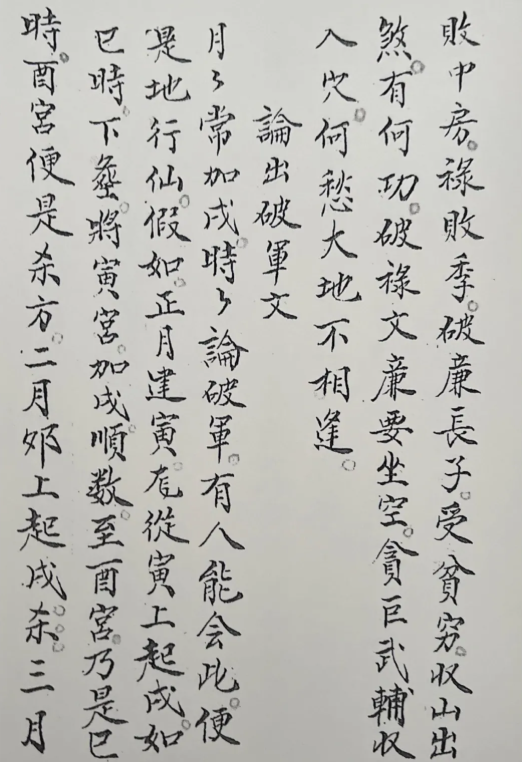 敗中房。祿敗季。破廉長子。受貧穷。収山出
煞。有何功。破祿文廉要坐空。貪巨武輔収
入穴。何愁大地不相逢。
論出破軍文
月々常加戌。時々論破軍。有人能会此。便
是地行仙。假如正月建寅。從寅上起戌。如
巳時下塟。將寅宮。加戌順数。至酉宮。乃是巳
時。酉宮便是杀方。二月夘上起戌。杀。三月